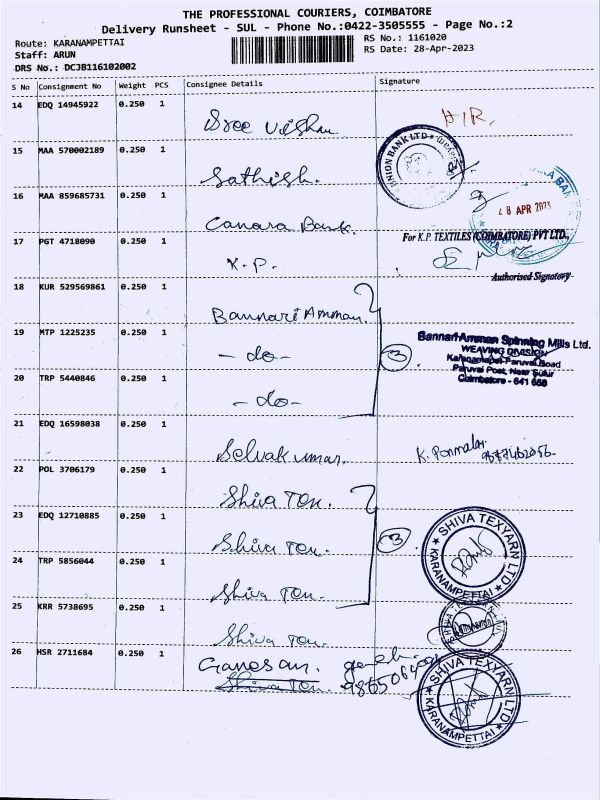 THE PROFESSIONAL COURIERS, COIMBATORE
Delivery Runsheet - SUL - Phone No.:0422-3505555 - Page No.:2
Route: KARANAMPETTAI
RS No.: 1161020
Staff: ARUN
RS Date: 28-Apr-2023
DRS No.: DCJB116102002
S No Consignment No Weight PCS Consignee Details Signature
14 EDQ 14945922 0.250 1
Sree Vishnu
15 MAA 570002189 0.250 1
UNION BANK LTD
Sathish.
16 MAA 859685731 0.250 1
28 APR 2023
Canara Bank.
17 PGT 4718090 0.250 1
For K.P. TEXTILES (COIMBATORE) PVT LTD.,
K.P.
Authorised Signatory
18 KUR 529569861 0.250 1
Bannari Amman.
19 MTP 1225235 0.250 1
- do -
3
Bannari Amman Spinning Mills Ltd.
WEAVING DIVISION
Karanampet-Paruvai Road
Paruvai Post, Near Sulur
Coimbatore - 641 658
20 TRP 5440846 0.250 1
- do -
21 EDQ 16598038 0.250 1
Selvakumar.
K. Ponmalar
22 POL 3706179 0.250 1
Shiva Tex.
23 EDQ 12710885 0.250 1
Shiva Tex.
3
SHIVA TEXYARN LTD
KARANAMPETTAI
24 TRP 5856044 0.250 1
Shiva Tex.
25 KRR 5738695 0.250 1
Shiva Tex.
26 HSR 2711684 0.250 1
Ganesan.
Shiva Tex.
SHIVA TEXYARN LTD
KARANAMPETTAI